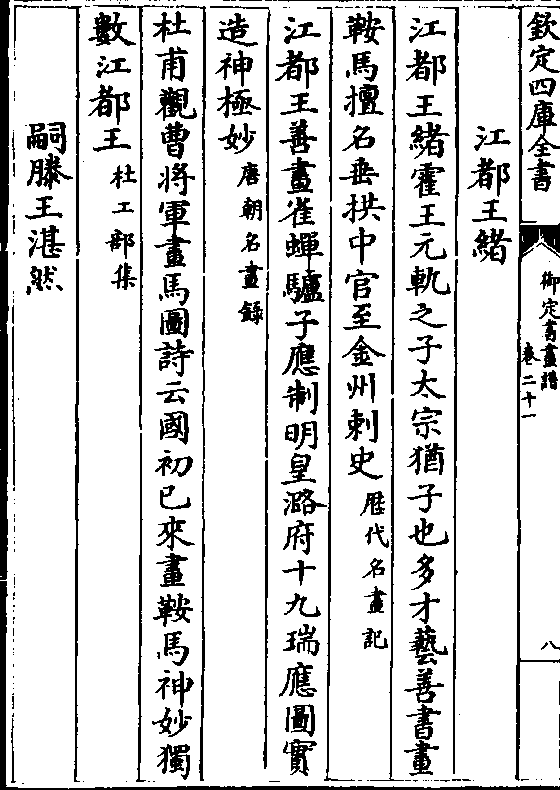 欽定四庫全書
御定書畫譜
卷二十一
八
江都王緒
江都王緒霍王元軌之子太宗猶子也多才藝善書畫
鞍馬擅名垂拱中官至金州刺史歷代名畫記
江都王善畫雀蟬驢子應制明皇潞府十九瑞應圖實
造神極妙唐朝名畫錄
杜甫觀曹將軍畫馬圖詩云國初已來畫鞍馬神妙獨
數江都王杜工部集
嗣滕王湛然